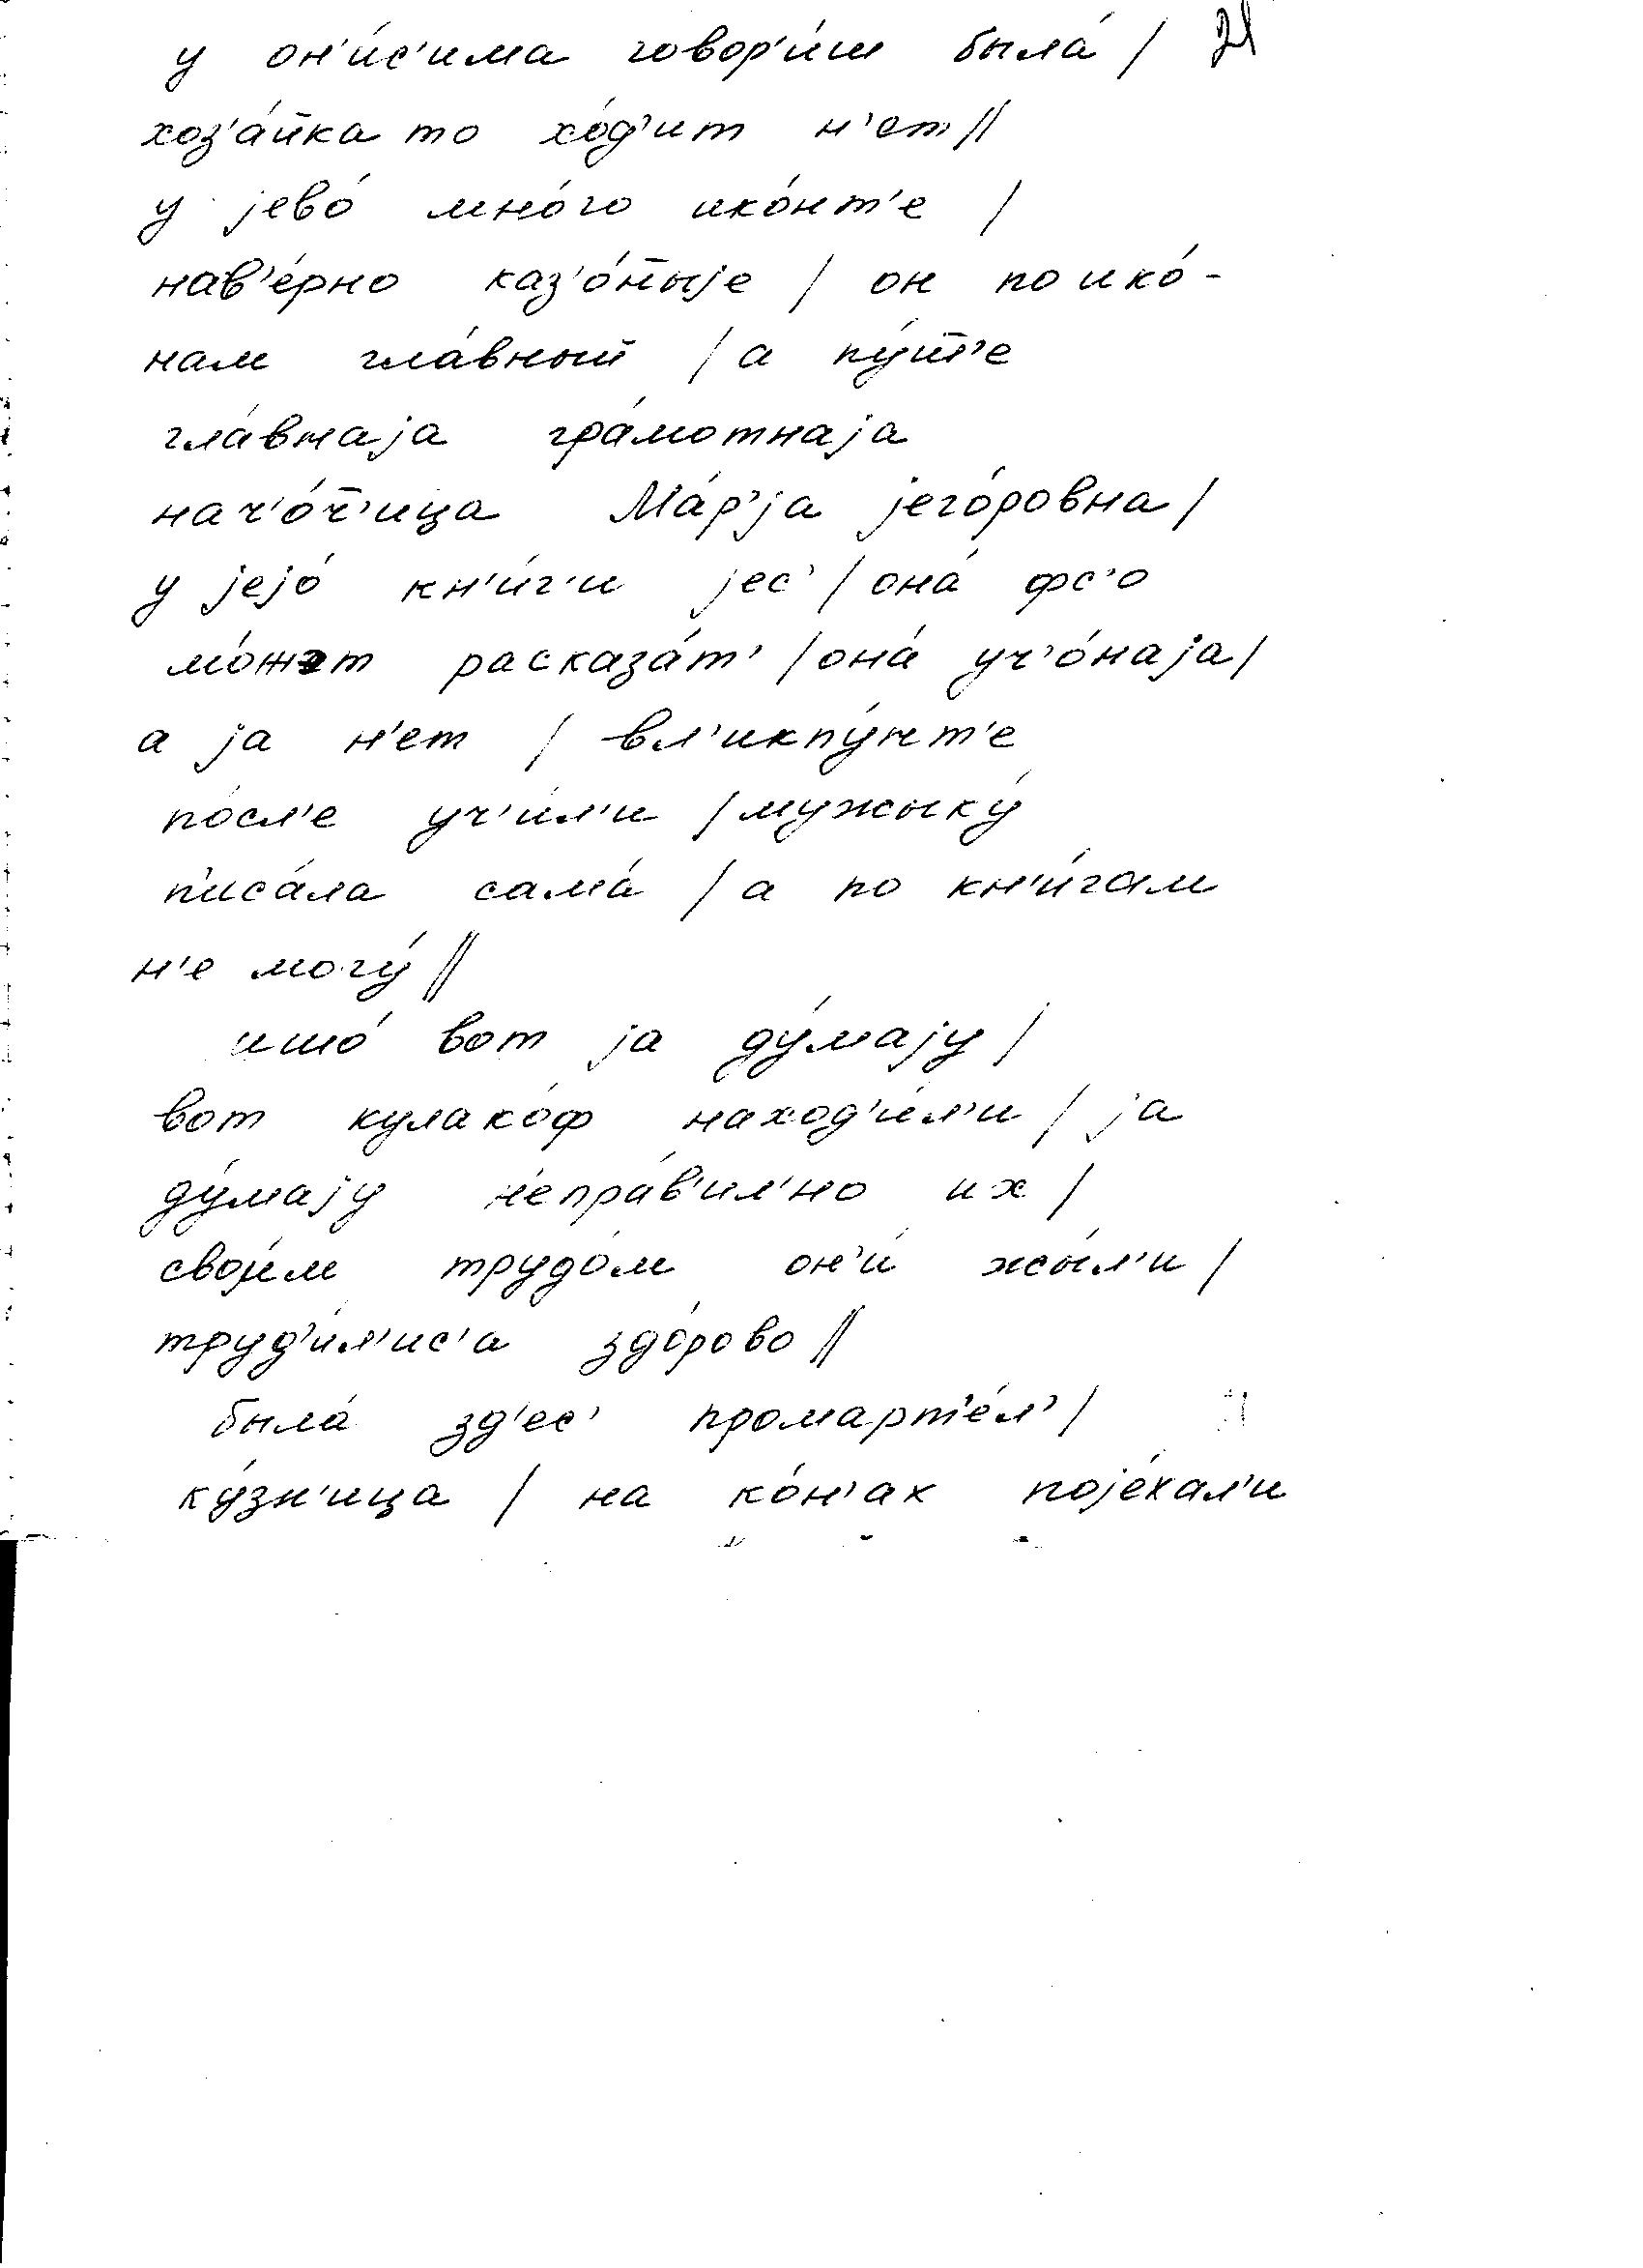 у он'и́с'има говор'и́ш была́ / 21
хоз'а́йка то хо́д'ит н'ет //
у јево́ мно́го ико́нт'е /
нав'е́рно каз'о́н̄ыје / он по ико́-
нам гла́вный / а пу́н̄т'е
гла́внаја гра́мотнаја
нач'о́т̄ч'ица Ма́р'ја јего́ровна /
у јејо́ кн'и́г'и јес' / она́ фс'о
мо́жэт расказа́т' / она́ уч'о́наја /
а ја н'ет / вл'икпу́нкт'е
по́сл'е уч'и́л'и / мужыку́
п'иса́ла сама́ / а по кн'и́гам
н'е могу́ //
ишо́ вот ја ду́мају /
вот кулако́ф наход'и́л'и / ја
ду́мају н'епра́в'ил'но их /
свои́м трудо́м он'и́ жы́л'и /
труд'и́л'ис'а здо́рово //
была́ зд'ес' промарт'е́л' /
ку́зн'ица / на ко́н'ах појéхал'и